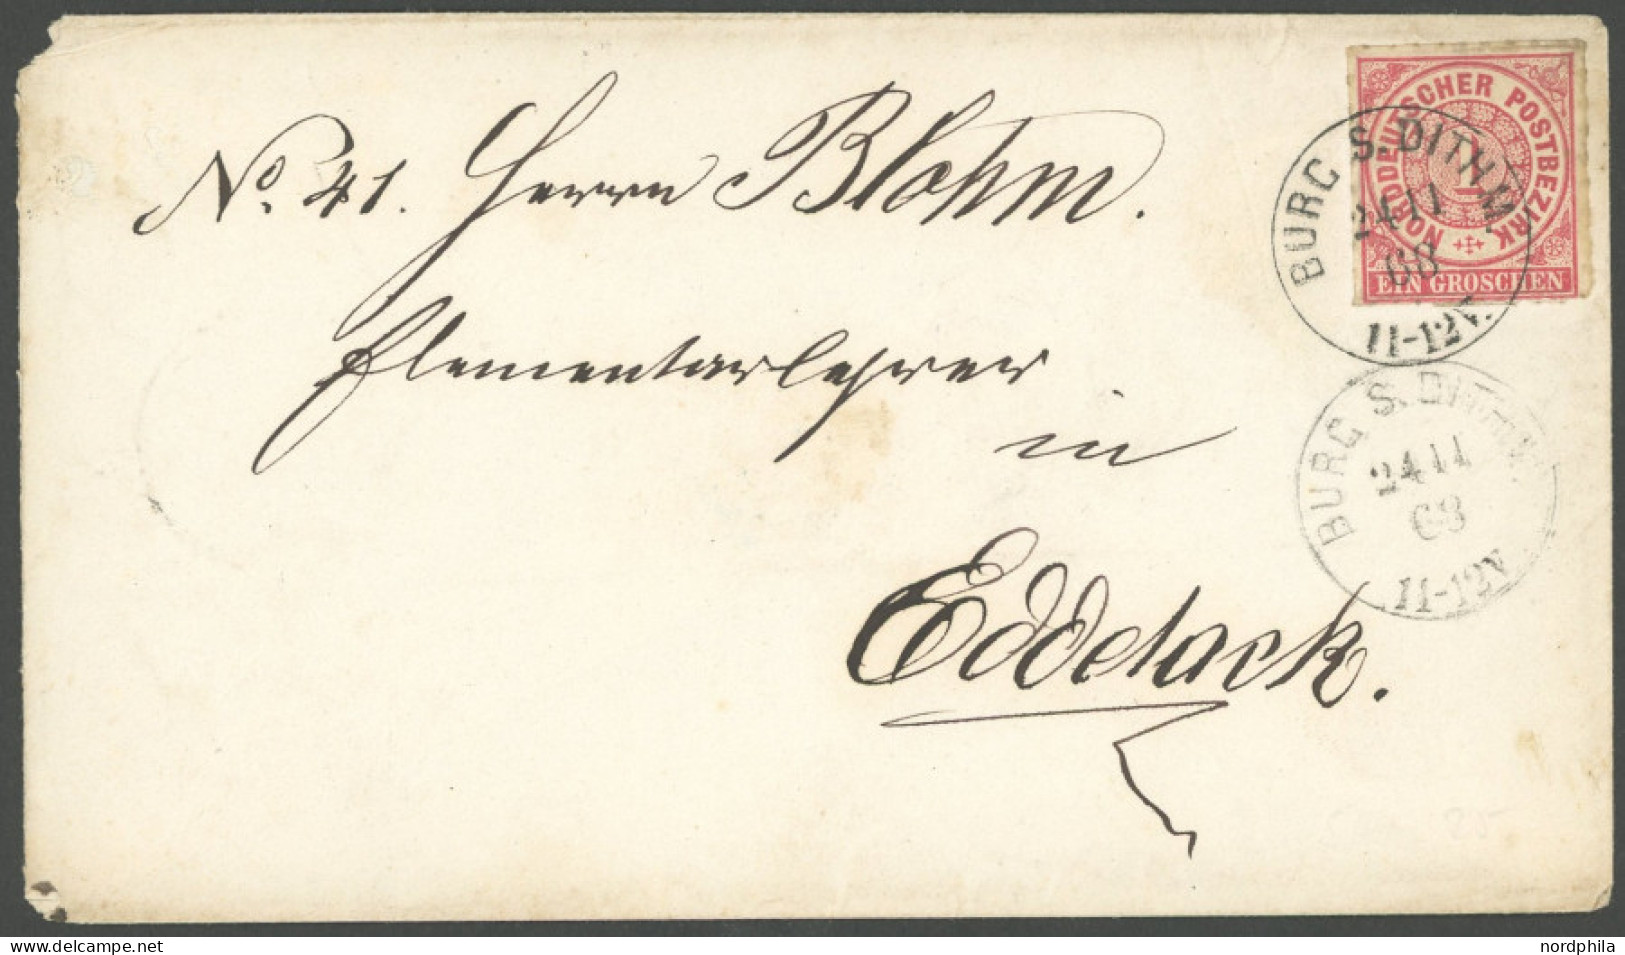 No. 41. Herrn Blohm.
Elementarlehrer
in
Eddelack.
NORDDEUTSCHER POSTBEZIRK
1
EIN GROSCHEN
BURG S. DITHM.
24 11
68
11-12V.
BURG S. DITHM.
24 11
68
11-12V.
www.delcampe.net
nordphila